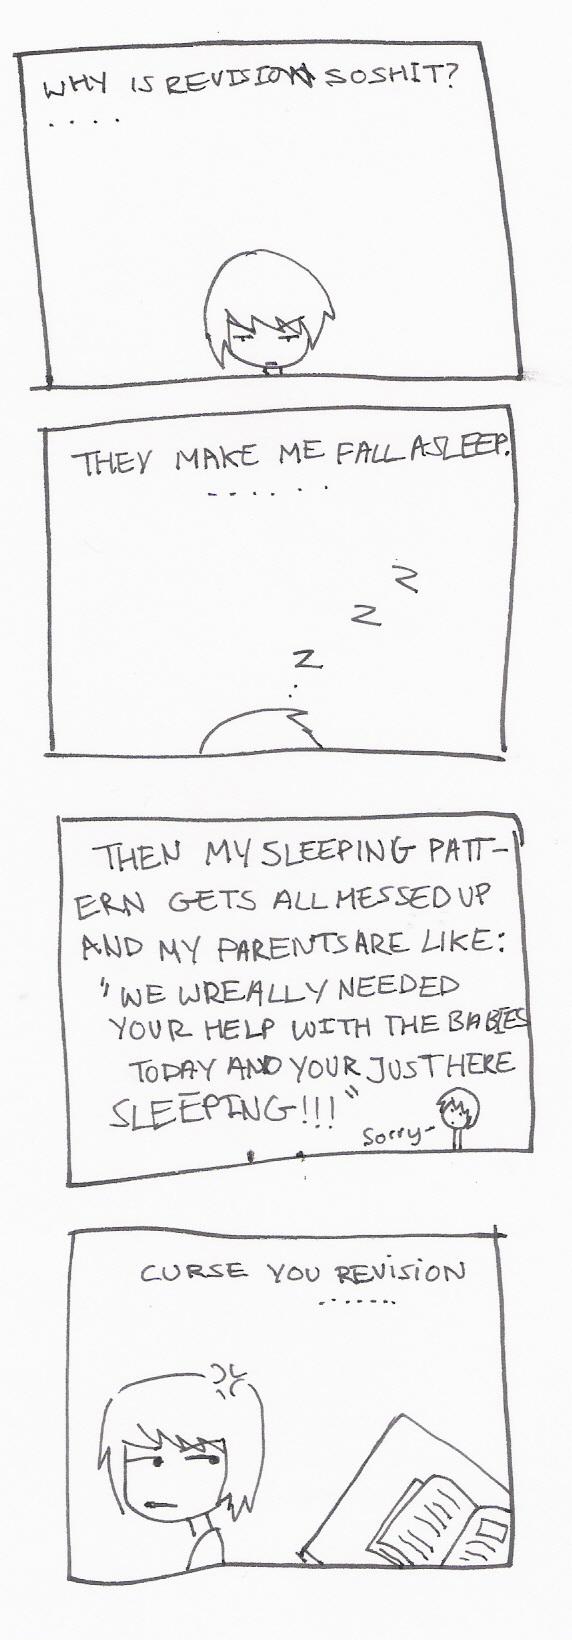 WHY IS REVISION SO SHIT?
....
THEY MAKE ME FALL ASLEEP.
......
Z
Z
Z
THEN MY SLEEPING PATT-
ERN GETS ALL MESSED UP
AND MY PARENTS ARE LIKE:
"WE WREALLY NEEDED
YOUR HELP WITH THE BABIES
TODAY AND YOUR JUST HERE
SLEEPING!!!"
Sorry-
CURSE YOU REVISION
.......